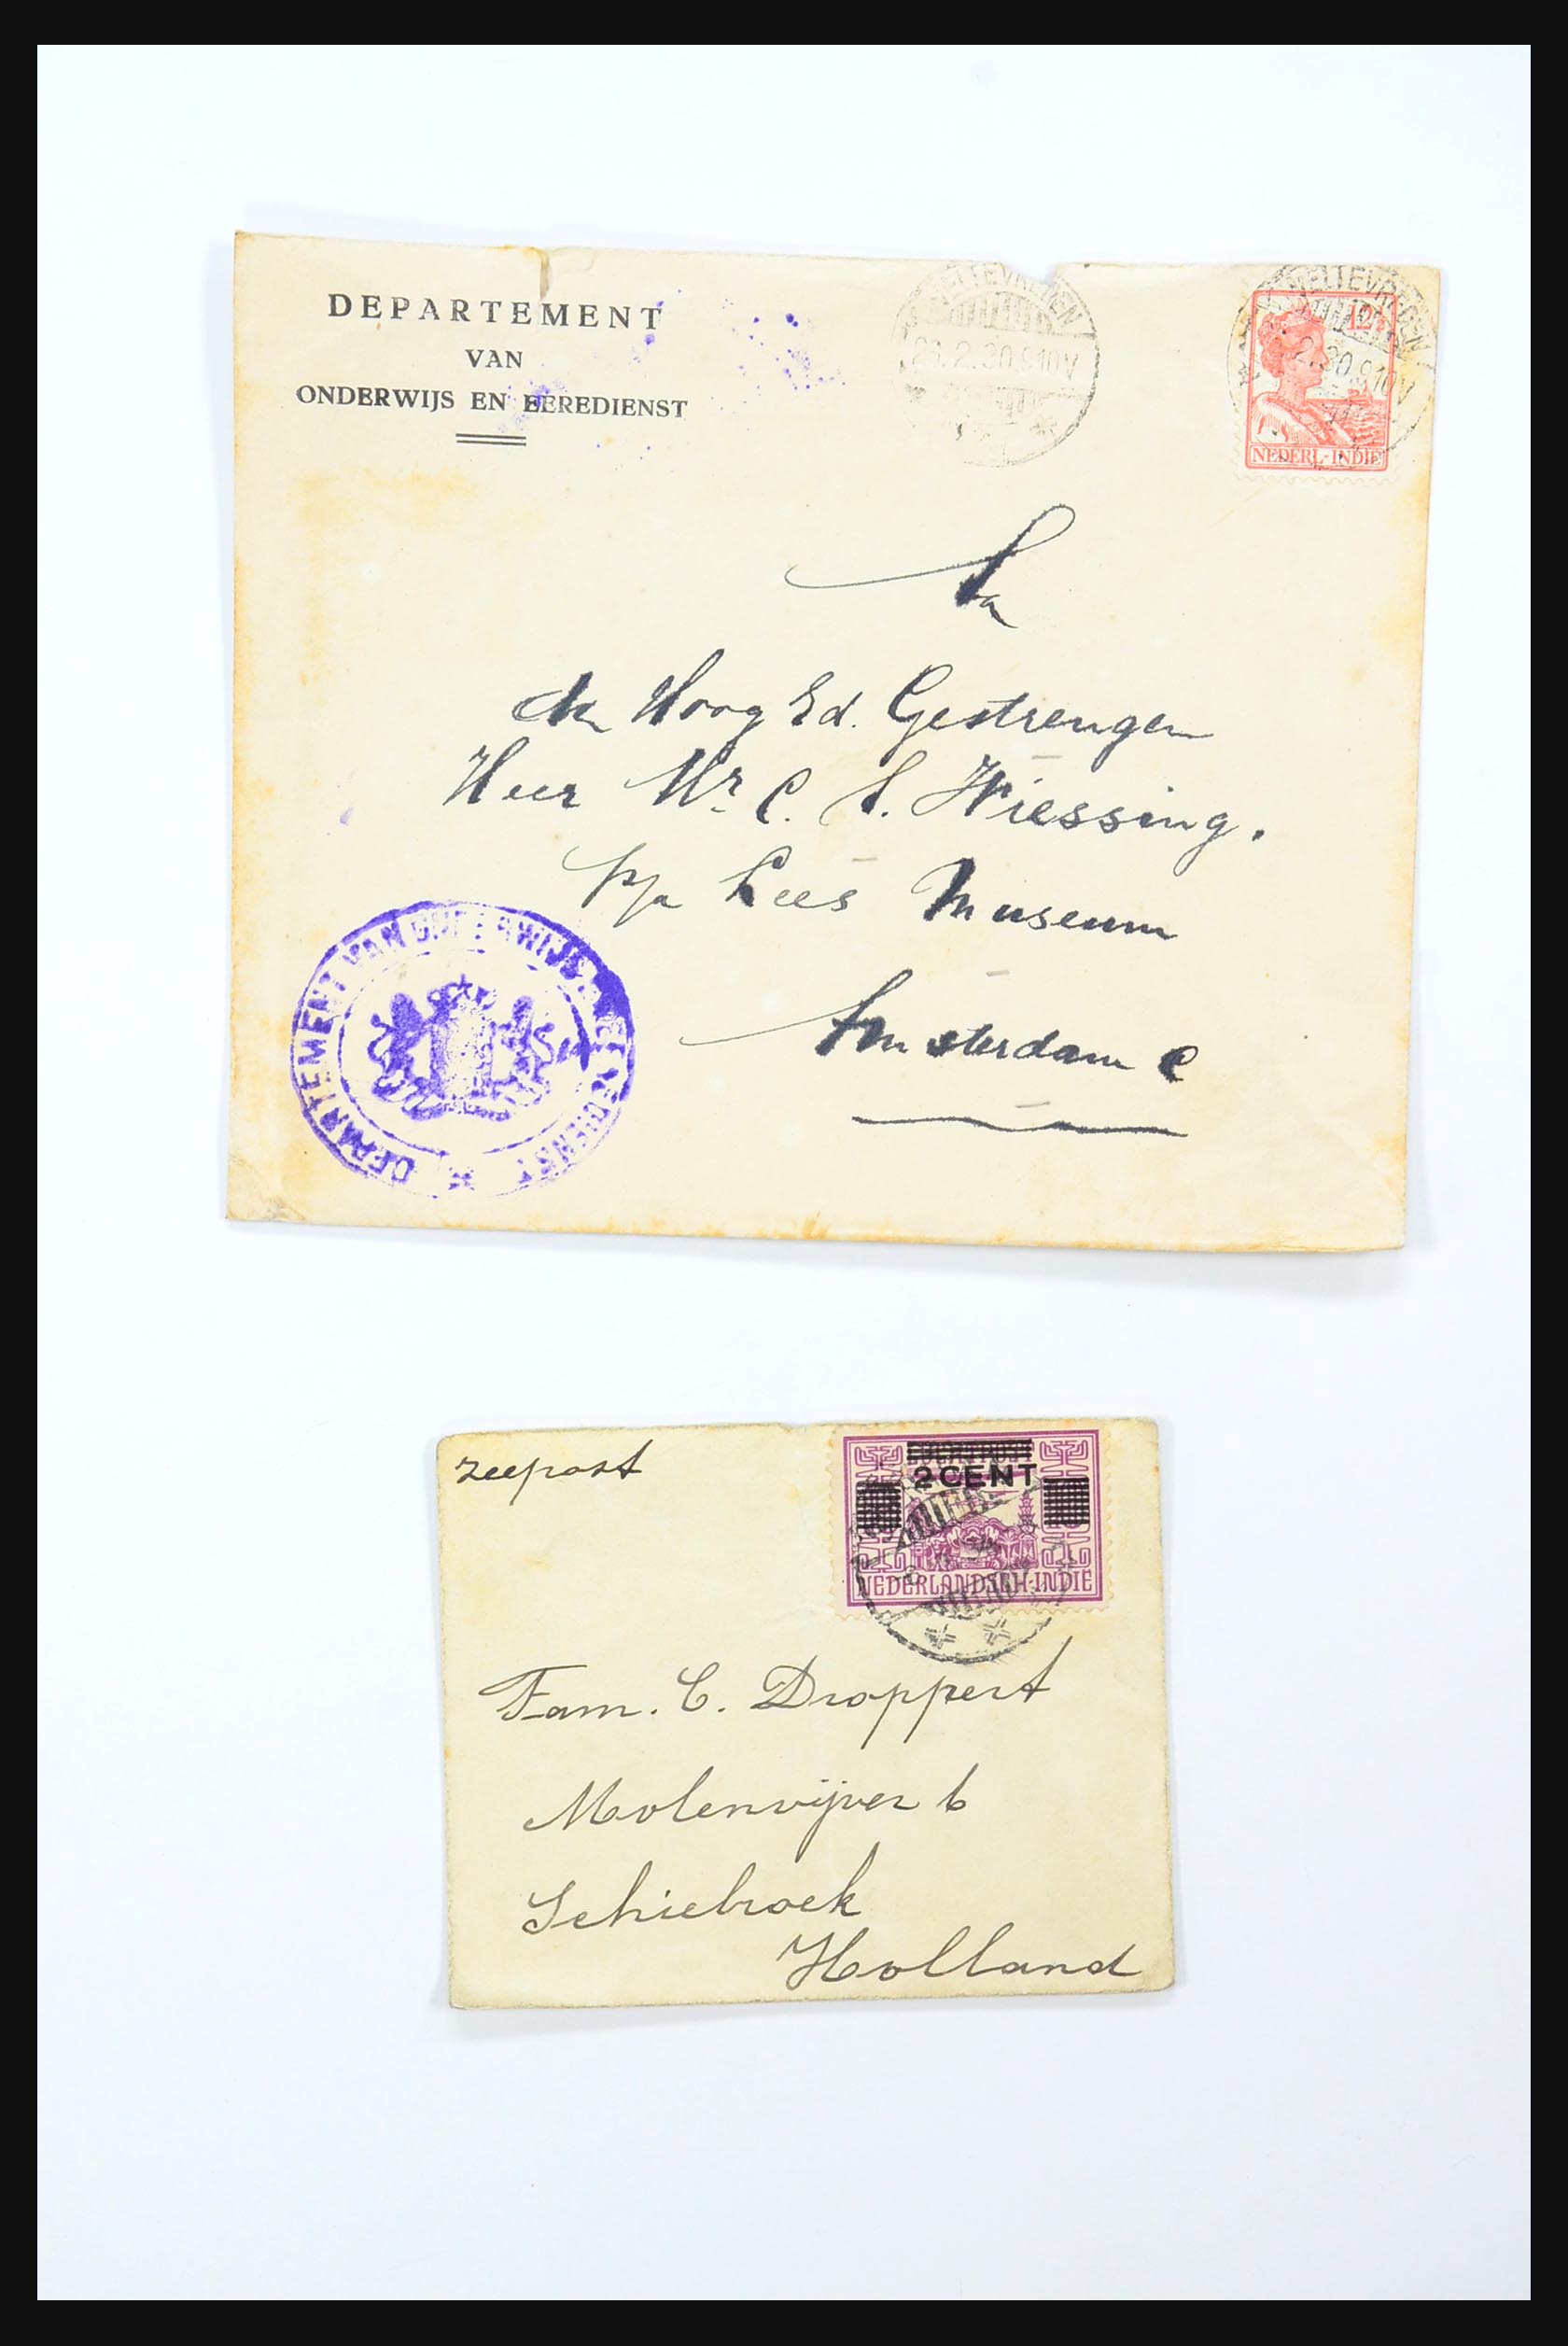 DEPARTEMENT
VAN
ONDERWIJS EN EEREDIENST
WELTEVREDEN
2.30.910V
WELTEVREDEN
2.30.910V
12½
NEDERL-INDIE
Aa
den Hoog Ed. Gestrengen
Heer Mr. C. A. Wiessing.
p/a Lees Museum
Amsterdam C
DEPARTEMENT VAN ONDERWIJS EN EEREDIENST
zeepost
LUCHTPOST
2 CENT
NEDERLANDSCH-INDIE
Fam. C. Droppert
Molenvijver 6
Schiebroek
Holland